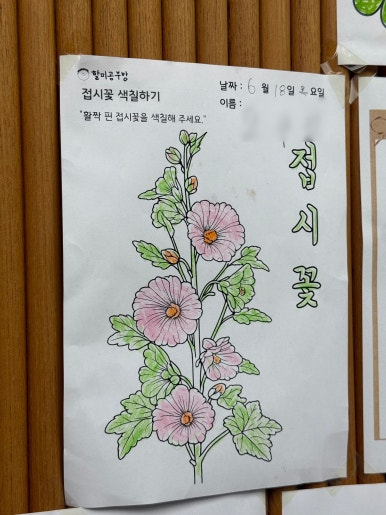 할미공주방
접시꽃 색칠하기
"활짝 핀 접시꽃을 색칠해 주세요."
날짜 : 6 월 18일 목요일
이름 :
접시꽃